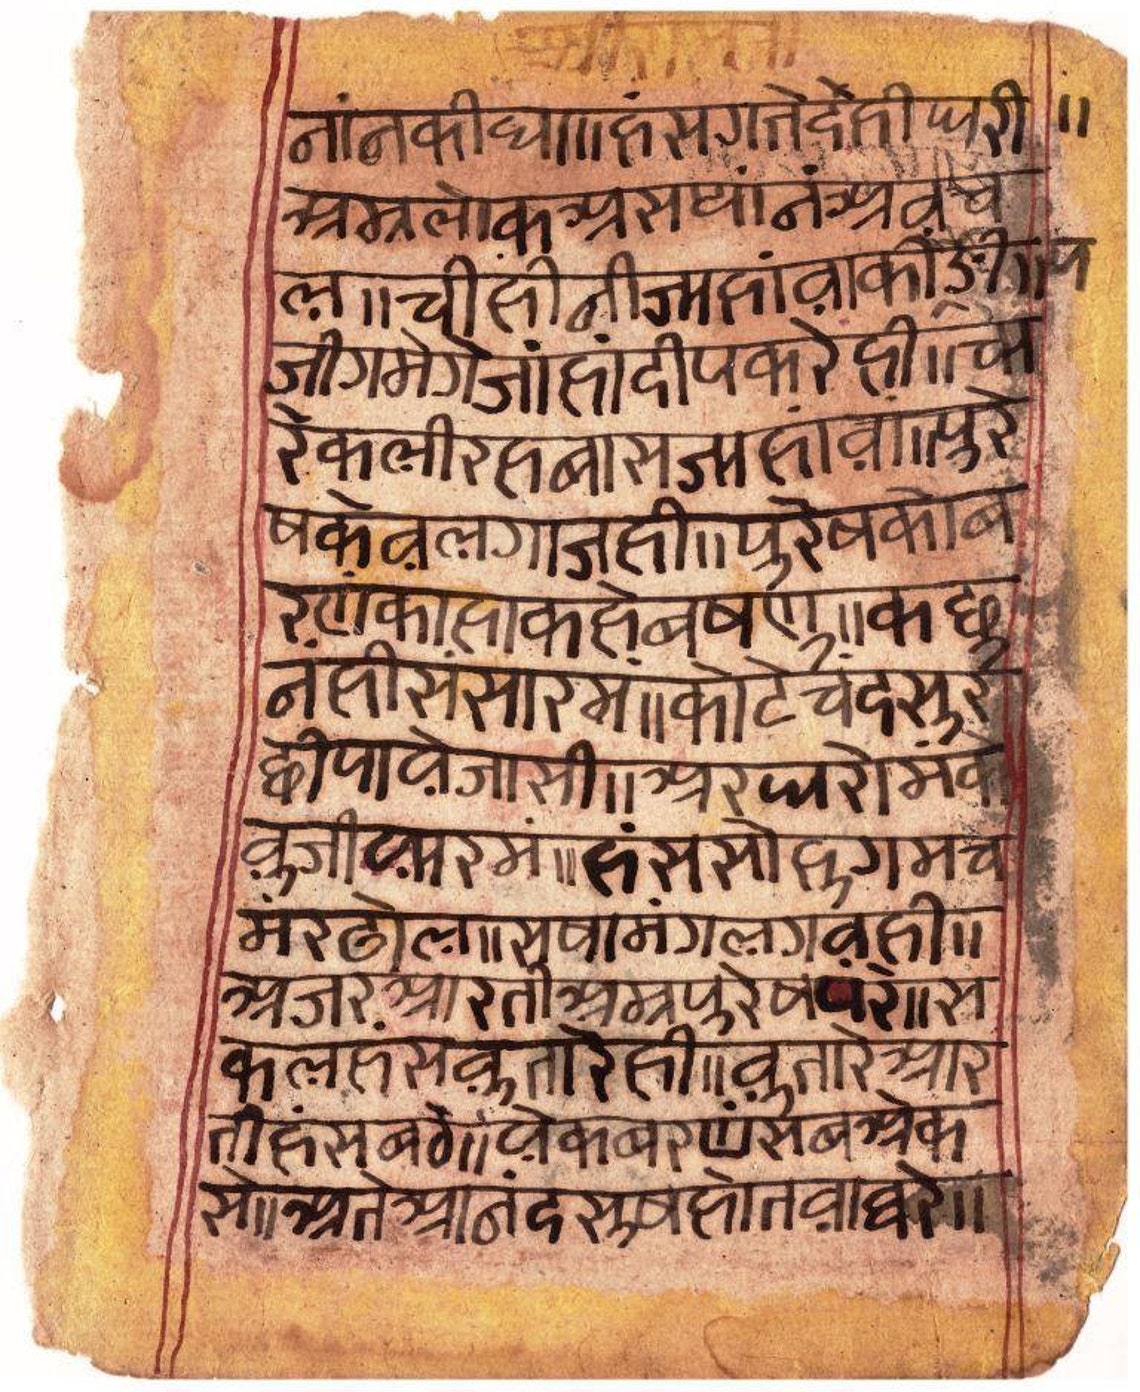 नांनकीघ॥॥हंसगतेदेहीघरी॥
अमरलोकअसथांनंअवंच
ल॥चीहीनीजमहांवाकी
जीगमेगेजांहांदीपकरेही॥
रेकलीरहबासजमहांवा॥पुरे
षकेबलगाजही॥पुरेषकोब
रंणकाहाकहेबषणु॥कछु
नहीसंसारम॥कोटेचंदसुर
छीपावेजासी॥अरधरोमंके
वुजीयारमं॥हंससोहगमच
मंरढोल॥सषामंगलगवही॥
अजरंआरतीअमरपुरेष॥स
कलहंसवुतारेही॥वुतारेआर
तीहंसबठे॥येकबरणसबअेक
से॥अतेआनंदसुषहोतवाघरे॥